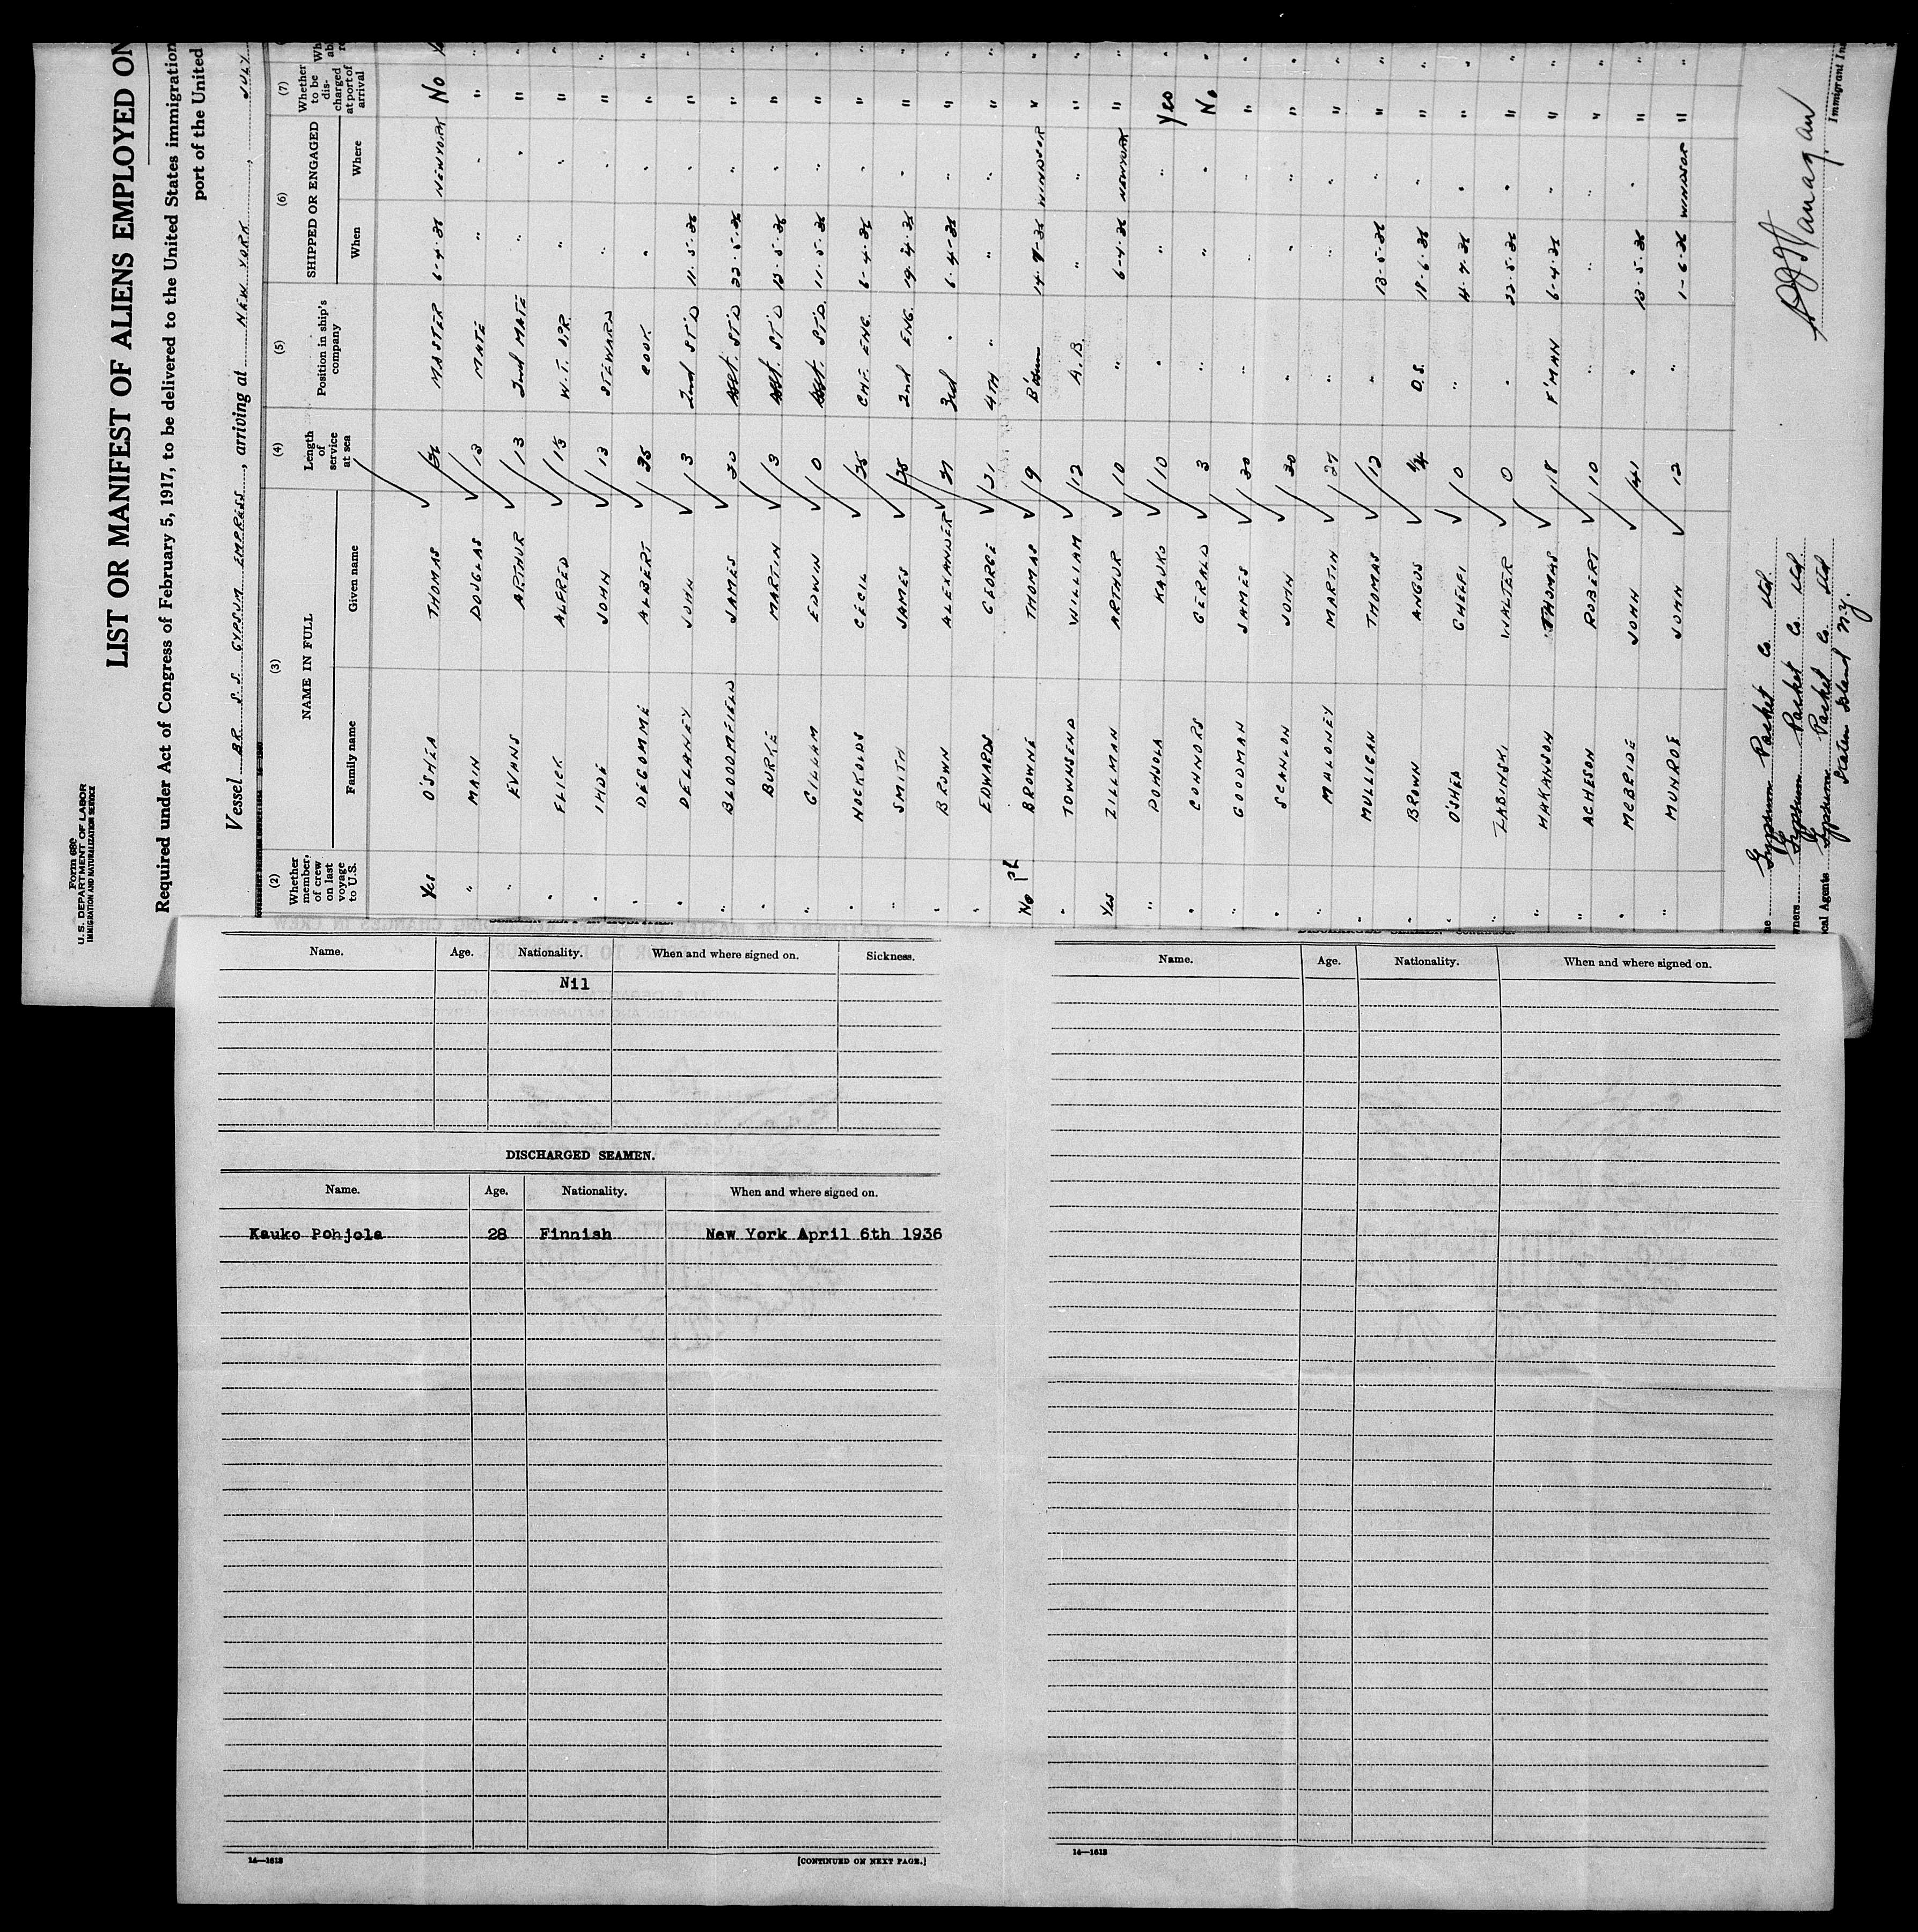 Form 680
U. S. DEPARTMENT OF LABOR
IMMIGRATION AND NATURALIZATION SERVICE
LIST OR MANIFEST OF ALIENS EMPLOYED ON
Required under Act of Congress of February 5, 1917, to be delivered to the United States immigration
port of the United
Vessel BR S.S. GYPSUM EMPRESS, arriving at NEW YORK, JULY
(2) (3) (4) (5) (6) (7)
Whether member of crew on last voyage to U.S. NAME IN FULL Family name Given name Length of service at sea Position in ship's company SHIPPED OR ENGAGED When Where Whether to be discharged at port of arrival
Yes O'SHEA THOMAS 36 MASTER 6-4-36 NEW YORK No
" MAIN DOUGLAS 13 MATE " " "
" EVANS ARTHUR 13 2nd MATE " " "
" FLICK ALFRED 13 W.T. OPR. " " "
" IHDE JOHN 13 STEWARD " " "
" DEGOMME ALBERT 35 COOK " " "
" DELANEY JOHN 3 2nd ST'D 11-5-36 " "
" BLOODMFIELD JAMES 30 Asst. ST'D 22-5-36 " "
" BURKE MARTIN 3 Asst. ST'D 13-5-36 " "
" GILLAM EDWIN 0 Asst. ST'D. 11-5-36 " "
" NOCKOLDS CECIL 35 CHF. ENG. 6-4-36 " "
" SMITH JAMES 2nd ENG. 19-4-36 " "
" BROWN ALEXANDER 3rd " 6-4-36 " "
" EDWARDS GEORGE 21 4TH " " " "
No BROWNE THOMAS 9 B'sun 14-7-36 WINDSOR "
" TOWNSEND WILLIAM 12 A.B. " " "
Yes ZILLMAN ARTHUR 10 " 6-4-36 NEW YORK "
" POHJOLA KAUKO 10 " " " Yes
" CONNORS GERALD 3 " " " No
" GOODMAN JAMES 30 " " " "
" SCANLON JOHN 30 " " " "
" MALONEY MARTIN 27 " " " "
" MULLIGAN THOMAS 12 " 13-5-36 " "
" BROWN ANGUS 1/4 O.S. 18-6-36 " "
" O'SHEA GHEFI 0 " 4-7-36 " "
" ZABINSKI WALTER 0 " 22-5-36 " "
" HAKANSON THOMAS 18 F'MAN 6-4-36 " "
" ACHESON ROBERT 10 " " " "
" McBRIDE JOHN 41 " 13-5-36 " "
" MUNROE JOHN 12 " 1-6-36 WINDSOR "
Gypsum Packet Co. Ltd
Gypsum Packet Co. Ltd
Gypsum Packet Co. Ltd
Staten Island N.Y.
Immigrant In
Name. Age. Nationality. When and where signed on. Sickness.
Nil
DISCHARGED SEAMEN.
Name. Age. Nationality. When and where signed on.
Kauko Pohjola 28 Finnish New York April 6th 1936
14—1613
[CONTINUED ON NEXT PAGE.]
Name. Age. Nationality. When and where signed on.
14—1613